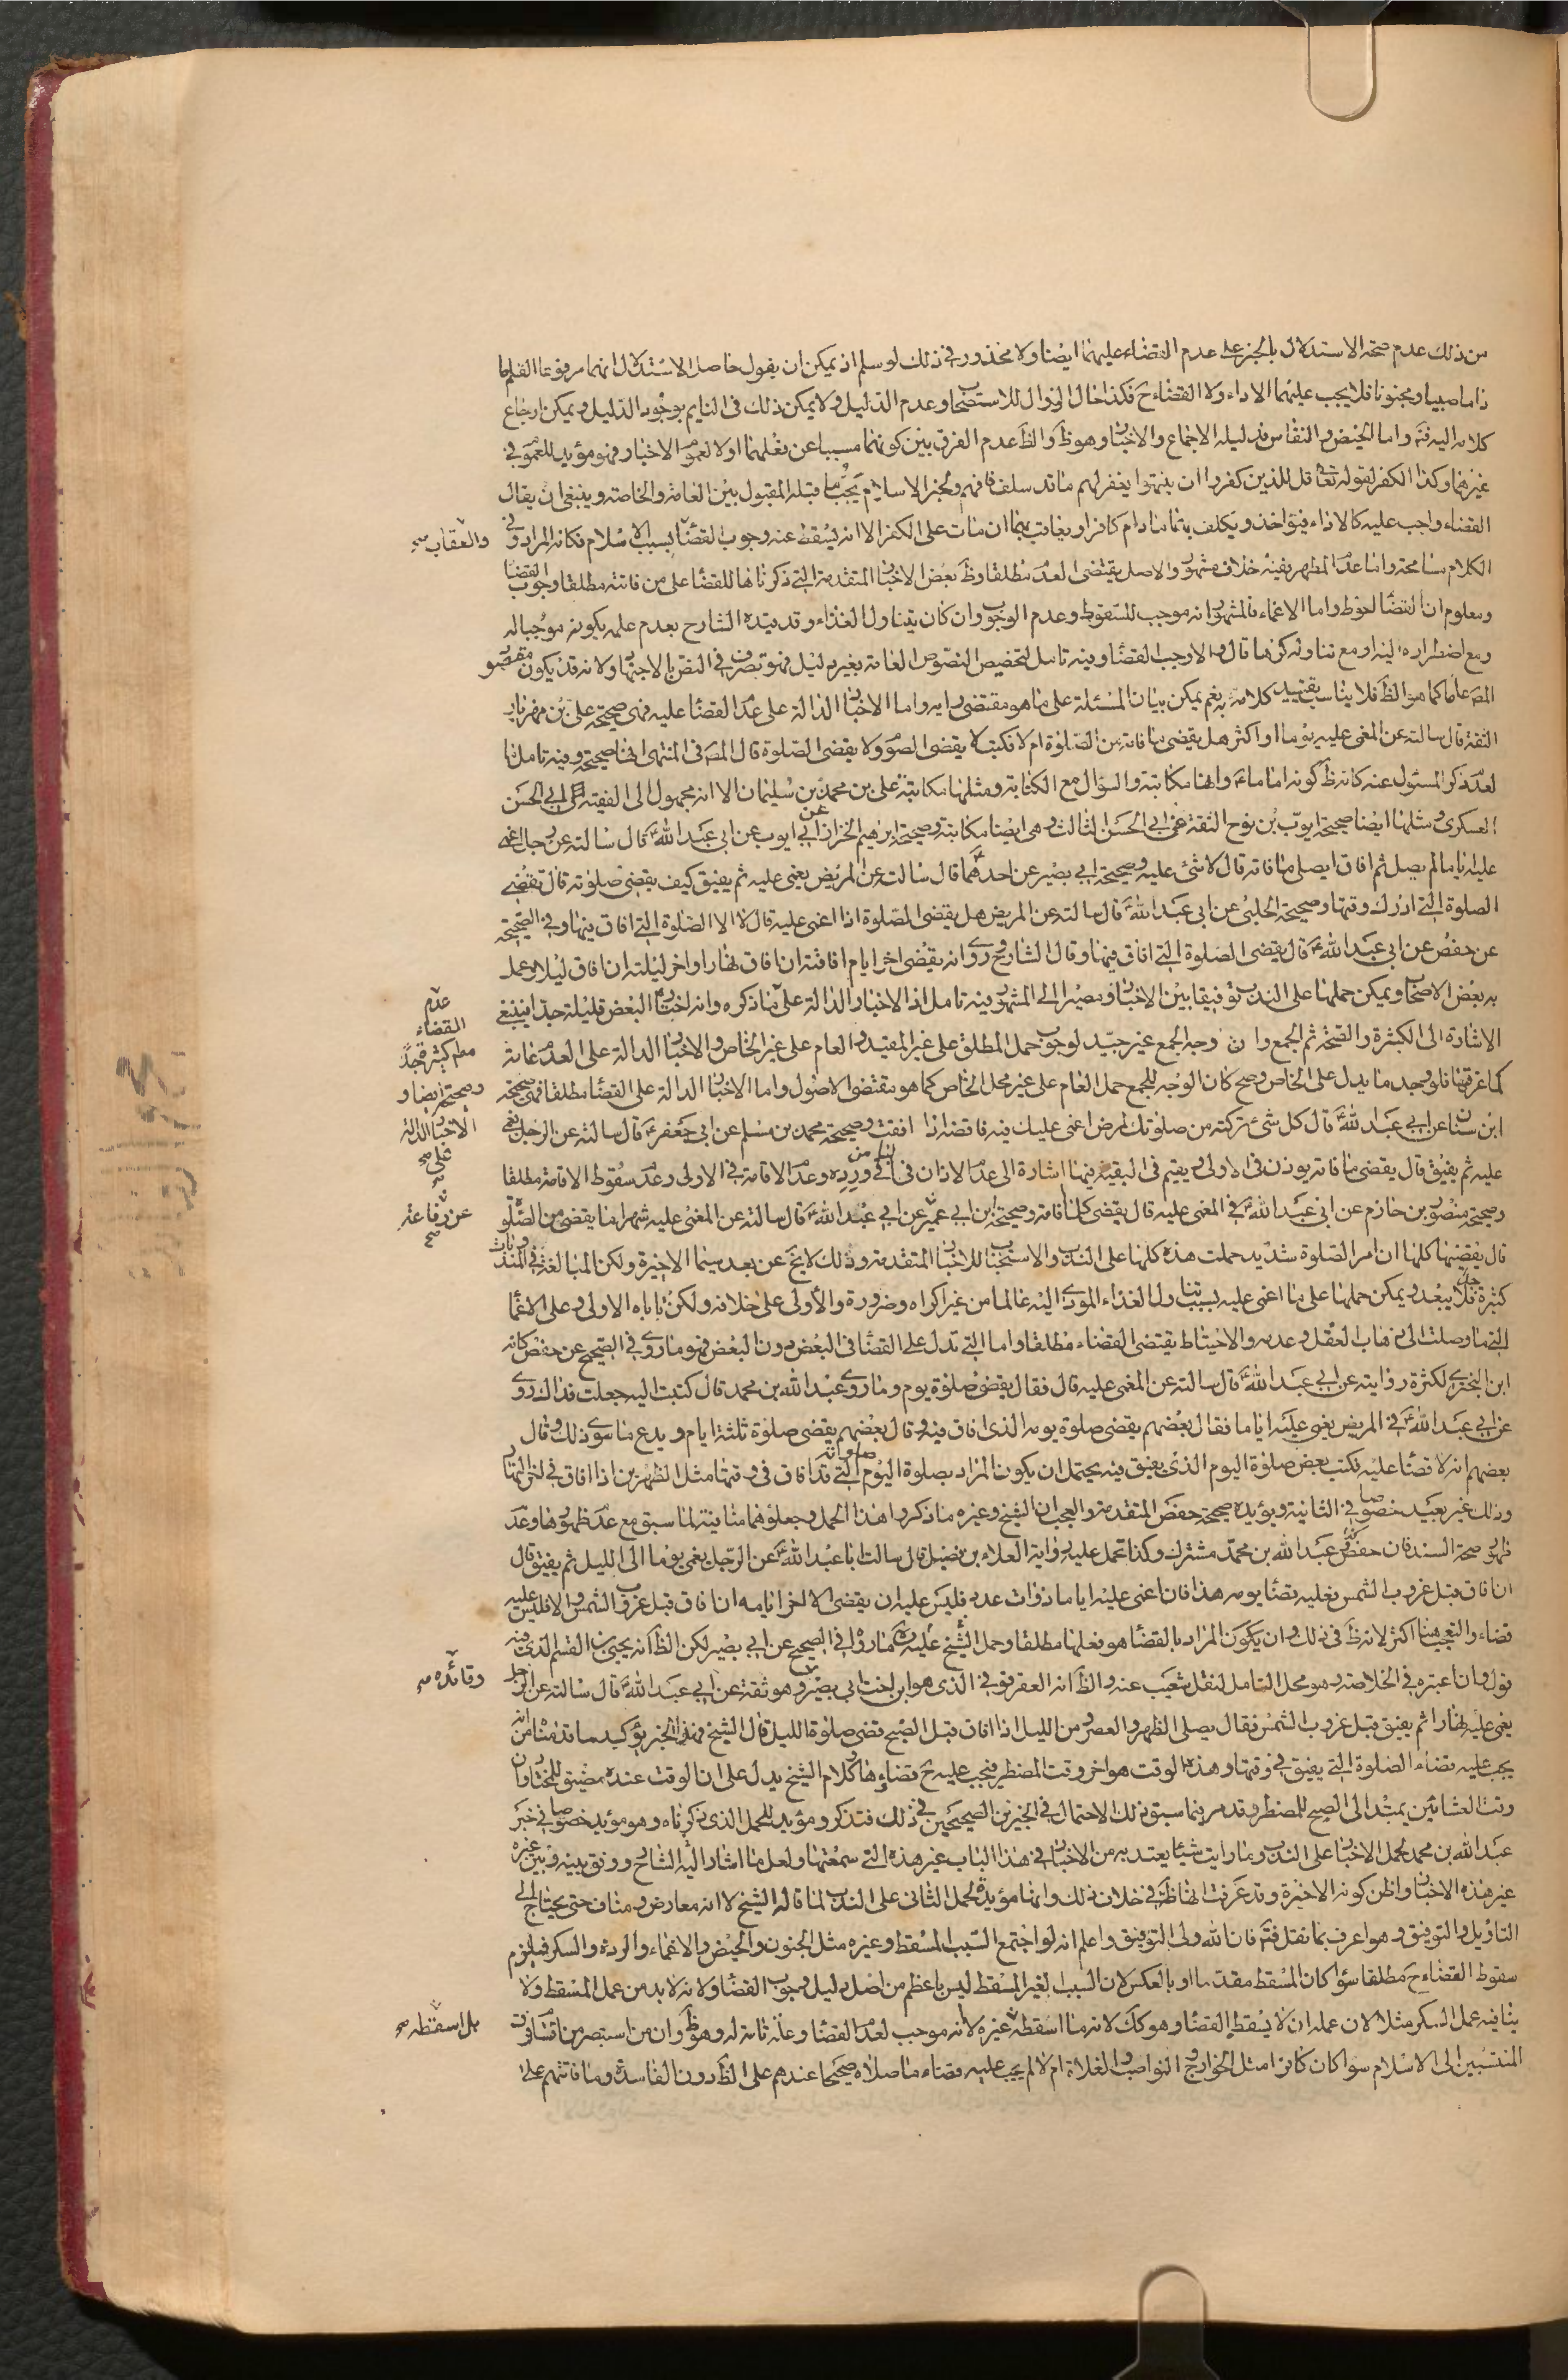 من ذلك عدم صحة الاستدلال بالخبر على عدم القضاء عليهما ايضا ولا محذور في ذلك لو سلم اذ يمكن ان يقول حاصل الاستدلال انهما مرفوعا القلم ما
داما صبيا ومجنونا فلا يجب عليهما الاداء ولا القضاء ح فكذا حال الزوال للاستصحاب وعدم الدليل ولا يمكن ذلك في النايم بوجود الدليل ويمكن ارجاع
كلامه اليه فتم واما الحيض والنفاس فدليله الاجماع والاخبار وهو ظ والظ عدم الفرق بين كونهما مسببا عن فعلهما اولا لعموم الاخبار فهو مؤيد للعموم في
غيرهما وكذا الكفر لقوله تعا قل للذين كفروا ان ينتهوا يغفر لهم ما قد سلف فافهم ولخبر الاسلام يجب ما قبله المقبول بين العامة والخاصة وينبغي ان يقال
القضاء واجب عليه كالاداء فيؤاخذ ويكلف بهما ما دام كافرا ويعاقب بهما ان مات على الكفر الا انه يسقط عنه وجوب القضا بسبب الاسلام فكانه المراد وفي
والعقاب صح
الكلام مسامحة واما عدم المطهر ففيه خلاف مشهور والاصل يقتضى العدم مطلقا وظ بعض الاخبار المتقدمة التي ذكرناها للقضا على من فاتته مطلقا وجوب القضا
ومعلوم ان القضا احوط واما الاغماء فالمشهور انه موجب للسقوط وعدم الوجوب وان كان بتناول الغذاء وقد قيده الشارح بعدم علمه بكونه موجبا له
ومع اضطراره اليه او مع تناوله كرها قال والا وجب القضا وفيه تامل لتخصيص النصوص العامة بغير دليل فهو تصرف في النص بالاجتهاد ولانه قد يكون مقصود
المص عاما كما هو الظ فلا يناسب تقييد كلامه به نعم يمكن بيان المسئلة على ما هو مقتضى رايه واما الاخبار الدالة على عدم القضا عليه فهى صحيحة على بن مهزيار
الثقة قال سالته عن المغمى عليه يوما او اكثر هل يقضى ما فاته من الصلوة ام لا فكتب لا يقضى الصوم ولا يقضى الصلوة قال المص في المنتهى انها صحيحة وفيه تامل لما
لعدم ذكر المسئول عنه كانه ظ كونه اماما ع وانها مكاتبة والسؤال مع الكتابة ومثلها مكاتبة على بن محمد بن سليمان الا انه مجهول الى الفقيه ابى الحسن
العسكرى ومثلها ايضا صحيحة ايوب بن نوح الثقة عن ابى الحسن الثالث وهى ايضا مكاتبة وصحيحة ابرهيم الخزاز ابى ايوب عن ابى عبد الله ع قال سالته عن رجل اغمى
عليه اياما لم يصل ثم افاق ايصلى ما فاته قال لا شئ عليه وصحيحة ابى بصير عن احدهما ع قال سالت عن المريض يغمى عليه ثم يفيق كيف يقضى صلوته قال تقضى
الصلوة التى ادرك وقتها وصحيحة الحلبى عن ابى عبد الله ع قال سالته عن المريض هل يقضى الصلوة اذا اغمى عليه قال لا الا الصلوة التى افاق فيها وفي الصحيحة
عن حفص عن ابى عبد الله ع قال يقضى الصلوة التى افاق فيها وقال الشارح روى انه يقضى اخر ايام افاقته ان افاق نهارا او اخر ليلته ان افاق ليلا وعمل
به بعض الاصحاب ويمكن حملها على الندب توفيقا بين الاخبار ومصيرا الى المشهور وفيه تامل اذ الاخبار الدالة على ما ذكره وانه اخبار البعض قليلة جدا فينبغى
عدم القضاء مطم كثيرة جدا وصحيحة ايضا والاخبار الدالة على صح
الاشارة الى الكثرة والصحة ثم الجمع وان وجه الجمع غير جيد لوجوب حمل المطلق على غير المقيد والعام على غير الخاص والاخبار الدالة على العدم عامة
كما عرفتها فلو وجد ما يدل على الخاص وصح كان الوجه للجمع حمل العام على غير محل الخاص كما هو مقتضى الاصول واما الاخبار الدالة على القضا مطلقا فهى صحيحة
ابن سنان عن ابى عبد الله ع قال كل شئ تركته من صلوتك لمرض اغمى عليك فيه فاقضه اذا افقت وصحيحة محمد بن مسلم عن ابى جعفر ع قال سالته عن الرجل يغمى
عليه ثم يفيق قال يقضى ما فاته يوذن في الاولى ويقيم في البقية فيها اشارة الى عدم الاذان في وعدم الاقامة في الاولى وعدم سقوط الاقامة مطلقا
وصحيحة منصور بن حازم عن ابى عبد الله ع في المغمى عليه قال يقضى كلما فاته وصحيحة ابن ابى عمير عن ابى عبد الله ع قال سالته عن المغمى عليه شهرا ما يقضى من الصلوة
عن رفاعة صح
قال يقضيها كلها ان امر الصلوة شديد حملت هذه كلها على الندب والاستحباب للاخبار المتقدمة وذلك لا يخ عن بعد سيما الاخيرة ولكن المبالغة في المندوبات
كثيرة فلا يبعد ويمكن حملها على ما اغمى عليه بسبب تناول الغذاء المودى اليه عالما من غير اكراه وضرورة والاولى على خلافه ولكن تاباه الاولى وعلى الاغما
التى ما وصلت الى ذهاب العقل وعدمه والاحتياط يقتضى القضاء مطلقا واما التى تدل على القضا في البعض دون البعض فهو ما روى في الصحيح عن حفص كانه
ابن البخترى لكثرة روايته عن ابى عبد الله ع قال سالته عن المغمى عليه قال فقال يقضى صلوة يوم وما روى عبد الله بن محمد قال كتبت اليه جعلت فداك روى
عن ابى عبد الله ع في المريض يغمى عليه اياما فقال بعضهم يقضى صلوة يومه الذى افاق فيه وقال بعضهم يقضى صلوة ثلثة ايام ويدع ما سوى ذلك وقال
بعضهم انه لا قضا عليه فكتب يقضى صلوة اليوم الذى يفيق فيه يحتمل ان يكون المراد بصلوة اليوم التى قد افاق في وقتها مثل الظهرين اذا افاق في اخر النهار
وذلك غير بعيد خصوصا في الثانية ويؤيده صحيحة حفص المتقدمة والعجب ان الشيخ وغيره ما ذكروا هذا الحمل وجعلوهما منافية لما سبق مع عدم ظهورها وعدم
ظهور صحة السند فان حفص كعبد الله بن محمد مشترك وكذا تحمل عليه رواية العلاء بن فضيل قال سالت ابا عبد الله ع عن الرجل يغمى يوما الى الليل ثم يفيق قال
ان افاق قبل غروب الشمس فعليه قضا يومه هذا فان اغمى عليه اياما ذوات عدد فليس عليه ان يقضى الا اخر ايامه ان افاق قبل غروب الشمس والا فليس عليه
قضاء والتعجب هنا اكثر لانه ظ في ذلك وان يكون المراد بالقضا هو فعلها مطلقا وحمل الشيخ عليه ما رواه في الصحيح عن ابى بصير لكن الظ انه يحيى بن القسم الذى فيه
قول وان اعتبره في الخلاصة وهو محل التامل لنقل شعيب عنه والظ انه العقرقوفي الذى هو ابن اخت ابى بصير وهو ثقة عن ابى عبد الله ع قال سالته عن الرجل
وقائده صح
يغمى عليه نهارا ثم يفيق قبل غروب الشمس فقال يصلى الظهر والعصر ومن الليل اذا افاق قبل الصبح قضى صلوة الليل قال الشيخ فهذا الخبر يؤكد ما قدمنا من انه
يجب عليه قضاء الصلوة التى يفيق في وقتها وهذه الوقت هو اخر وقت المضطر فيجب عليه ح قضاؤها وكلام الشيخ يدل على ان الوقت عنده مضيق للمختار وان
وقت العشائين يمتد الى الصبح للمضطر وقد مر فيما سبق ذلك الاحتمال في الخبرين الصحيحين في ذلك فتذكر ومؤيد للحمل الذى ذكرناه وهو مؤيد خصوصا في خبر
عبد الله بن محمد لحمل الاخبار على الندب وما رايت شيئا يعتد به من الاخبار في هذا الباب غير هذه التى سمعتها ولعل ما اشار اليه الشارح ووفق بينه وبين غيره
غير هذه الاخبار واظن كونه الاخيرة وقد عرفت انها ظ في خلاف ذلك وانها مؤيدة لحمل الثانى على الندب لما قاله الشيخ لا انه معارض ومناف حتى يحتاج الى
التاويل والتوفيق وهو اعرف بما نقل فتم فان الله ولى التوفيق واعلم انه لو اجتمع السبب المسقط وغيره مثل الجنون والحيض والاغماء والردة والسكر فيلزم
سقوط القضاء ح مطلقا سواء كان المسقط مقدما او بالعكس لان السبب لغير المسقط ليس باعظم من اصل دليل وجوب القضا ولانه لا بد من عمل المسقط ولا
ينافيه عمل السكر مثلا لان عمله ان لا يسقط القضا وهو كك لانه ما اسقطه غيره لانه موجب لعدم القضا وعلة تامة له وهو ظ وان من استبصر من سائر فرق
بل اسقطه صح
المنتسبين الى الاسلام سوا كان كافرا مثل الخوارج والنواصب والغلاة ام لا لم يجب عليه قضاء ما صلاه صحيحا عندهم على الظ دون الفاسدة وما فاتتهم على